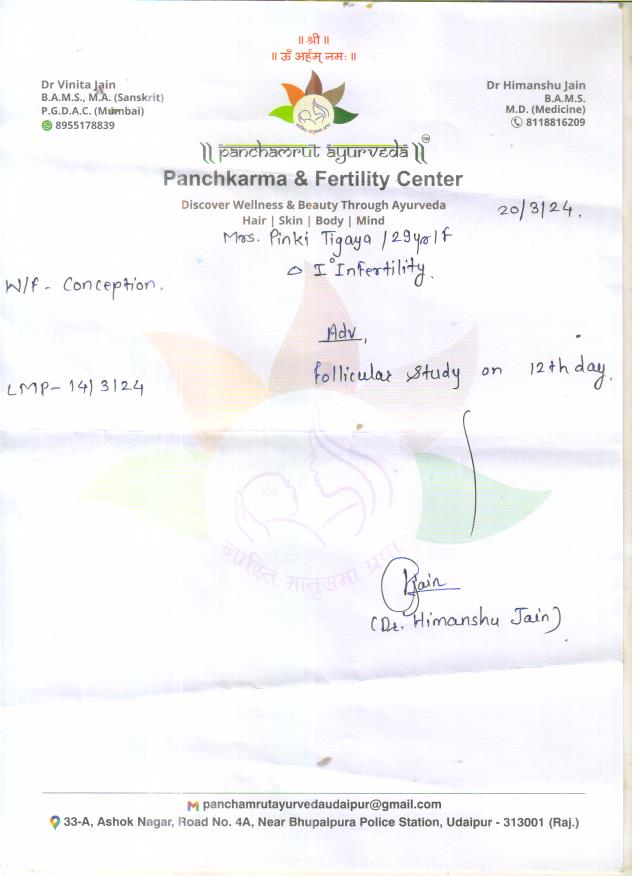 ॥ श्री ॥
॥ ॐ अर्हम् नमः ॥
Dr Vinita Jain
B.A.M.S., M.A. (Sanskrit)
P.G.D.A.C. (Mumbai)
8955178839
Dr Himanshu Jain
B.A.M.S.
M.D. (Medicine)
8118816209
नास्ति मातृसमा प्रपा
|| panchamrut ayurveda ||
Panchkarma & Fertility Center
Discover Wellness & Beauty Through Ayurveda
Hair | Skin | Body | Mind
20/3/24.
Mrs. Pinki Tigaya / 29yr/f
△ I° Infertility.
W/f - Conception.
Adv,
LMP- 14/3/24
follicular study on 12th day.
नास्ति मातृसमा प्रपा
Hjain
(Dr. Himanshu Jain)
panchamrutayurvedaudaipur@gmail.com
33-A, Ashok Nagar, Road No. 4A, Near Bhupalpura Police Station, Udaipur - 313001 (Raj.)